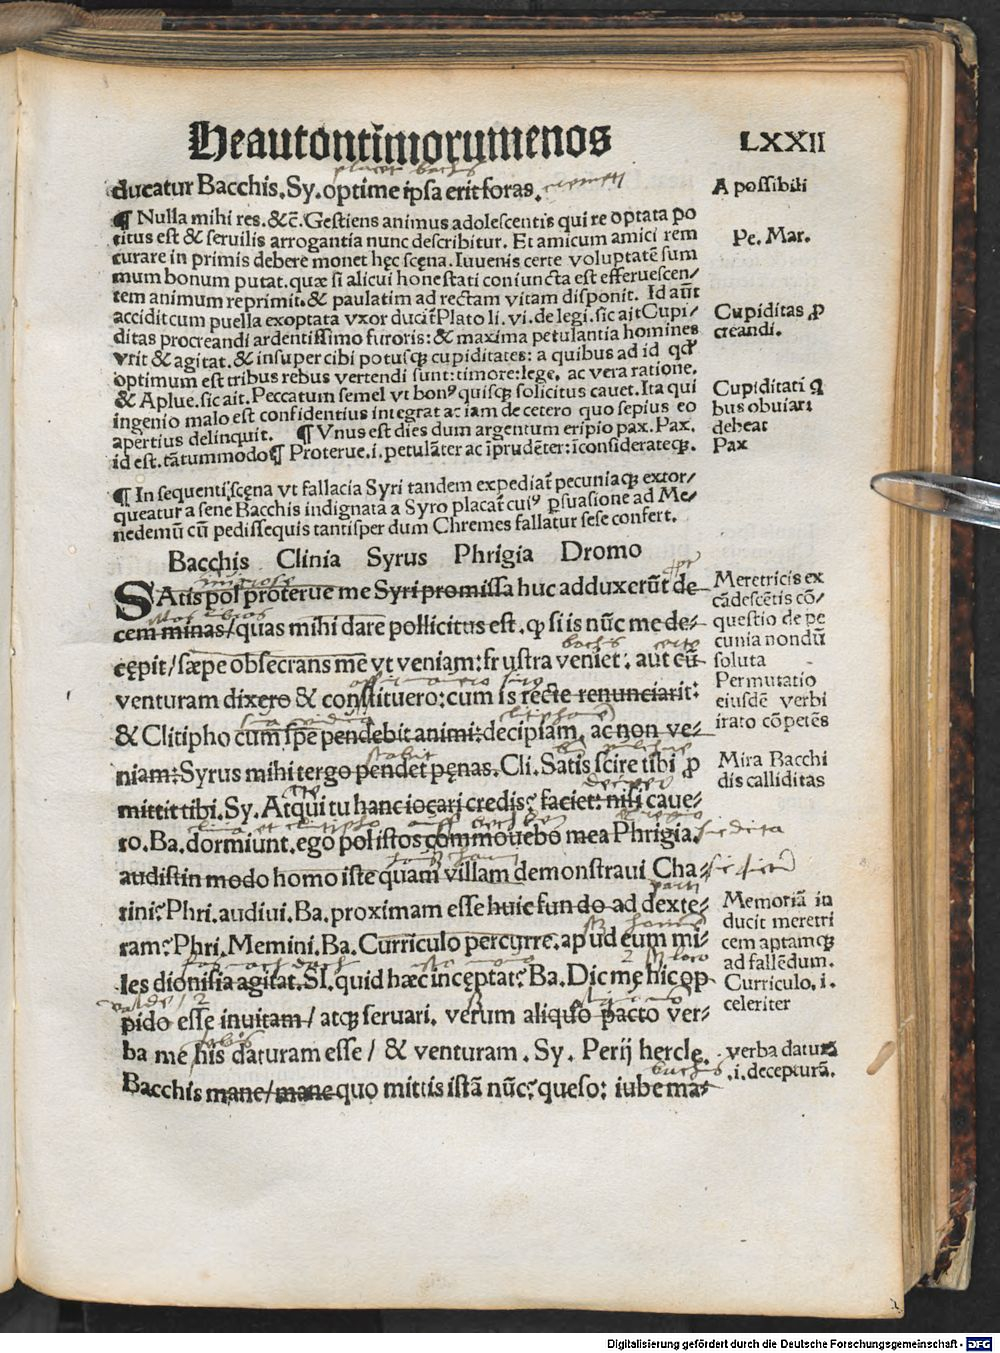 Heautontimorumenos LXXII
ducatur Bacchis. Sy. optime ipsa erit foras.
A possibili
¶ Nulla mihi res. &c̄. Gestiens animus adolescentis qui re optata po
titus est & seruilis arrogantia nunc describitur. Et amicum amici rem
Pe. Mar.
curare in primis debere monet hęc scęna. Iuuenis certe voluptatē sum
mum bonum putat. quæ si alicui honestati coniuncta est efferuescen/
tem animum reprimit. & paulatim ad rectam vitam disponit. Id aūt
accidit cum puella exoptata vxor ducit̄ Plato li. vi. de legi. sic ait Cupi/
Cupiditas ꝓ
creandi.
ditas procreandi ardentissimo furoris: & maxima petulantia homines
vrit & agitat. & insuper cibi potusqꝫ cupiditates: a quibus ad id qđ
optimum est tribus rebus vertendi sunt: timore: lege. ac vera ratione.
& Aplue. sic ait. Peccatum semel vt bonꝰ quisqꝫ solicitus cauet. Ita qui
Cupiditati
bus obuiari
debeat
ingenio malo est confidentius integrat ac iam de cetero quo sepius eo
apertius delinquit. ¶ Vnus est dies dum argentum eripio pax. Pax.
Pax
id est. tātummodo ¶ Proterue. i. petulāter ac īprudēter: īconsiderateqꝫ.
¶ In sequenti scęna vt fallacia Syri tandem expediat̄ pecuniaqꝫ extor/
queatur a sene Bacchis indignata a Syro placat̄ cuiꝰ ꝑsuasione ad Me/
nedemū cū pedissequis tantisper dum Chremes fallatur sese confert.
Bacchis Clinia Syrus Phrigia Dromo
SAtis pol proterue me Syri promissa huc adduxerūt de
Meretricis ex
cādescētis cō/
questio de pe
cunia nondū
soluta
cem minas/ quas mihi dare pollicitus est. ꝙ si is nūc me de/
cępit/ sæpe obsecrans me vt veniam: frustra veniet: aut cū
venturam dixero & constituero: cum is recte renunciarit:
Permutatio
eiusdē verbi
irato cōpetēs
& Clitipho cum spe pendebit animi: decipiam, ac non ve/
niam: Syrus mihi tergo pendet pęnas. Cli. Satis scire tibi ꝓ
Mira Bacchi
dis calliditas
mittit tibi. Sy. Atqui tu hanc iocari credis? faciet: nisi caue/
ro. Ba. dormiunt. ego pol istos commouebo mea Phrigia.
audistin modo homo iste quam villam demonstraui Cha/
rini? Phri. audiui. Ba. proximam esse huic fundo ad dexte/
ram? Phri. Memini. Ba. Curriculo percurre. apud eum mi/
Memoriā in
ducit meretri
cem aptamqꝫ
ad fallēdum.
les dionisia agitat. SI. quid hæc inceptat? Ba. Dic me hic op
Curriculo. i.
celeriter
pido esse inuitam/ atqꝫ seruari. verum aliquo pacto ver/
ba me his daturam esse/ & venturam. Sy. Perij hercle.
verba daturā
.i. decepturā.
Bacchis mane/ mane quo mittis istā nūc? queso: iube ma/
Digitalisierung gefördert durch die Deutsche Forschungsgemeinschaft - DFG